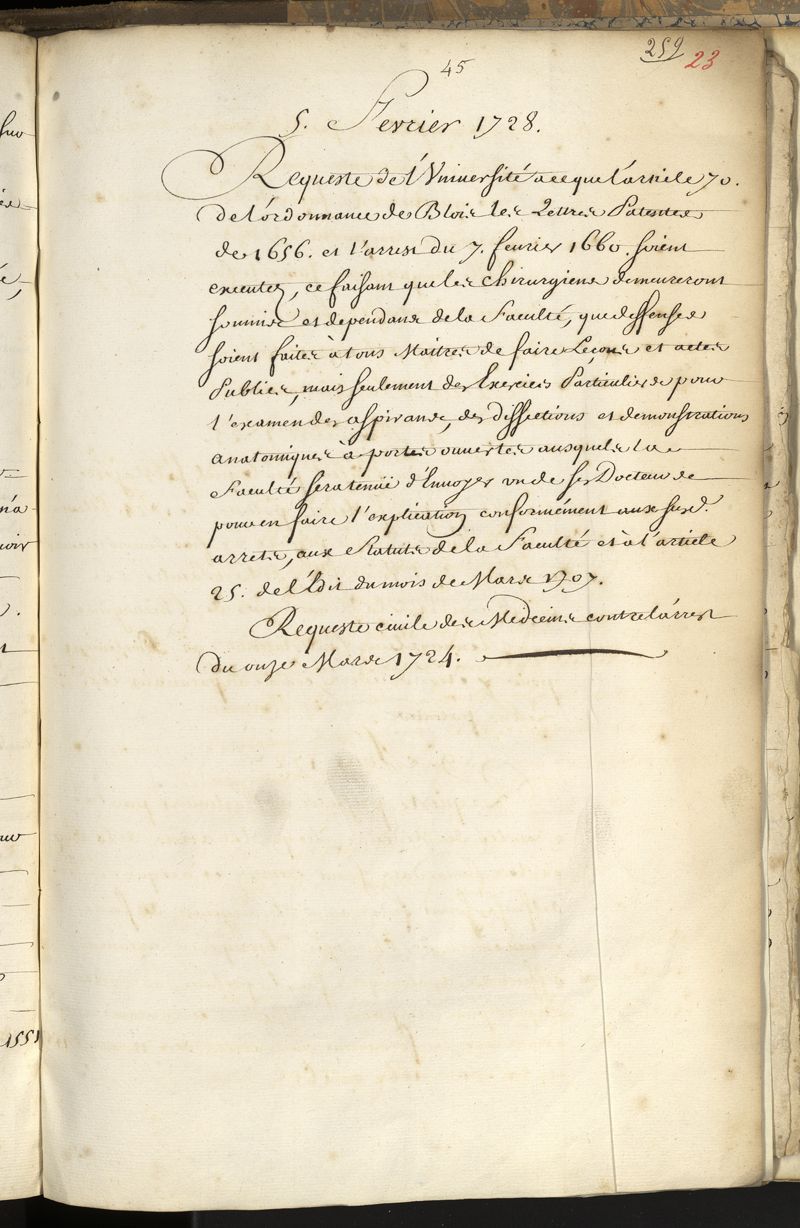 45
259
23
5. Fevrier 1728.
Requeste de l'Université a ce que l'article 70.
de l'ordonnance de Blois les Lettres Patentes
de 1656. et l'arrest du 7. fevrier 1660. soient
executez, ce faisant que les chirurgiens demeureront
soumis et dependans de la Faculté, que deffenses
soient faites à tous Maitres de faire Leçons et actes
Publics, mais seulement des Exercices Particuliers pour
l'examen des aspirans, des dissections et demonstrations
anatomiques à portes ouvertes ausquels la
Faculté sera tenüe d'Envoyer un de ses Docteurs
pour en faire l'explication conformément aux susd.
arrets, aux Statuts de la Faculté et à l'article
25. de l'Edit du mois de Mars 1707.
Requeste civile des Medecins contre l'arrest
du onze Mars 1724.
1551